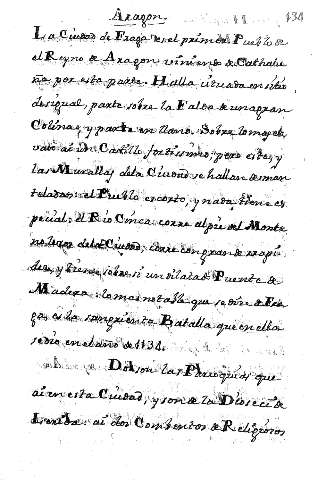 Aragon.
134
La Ciudad de Fraga es el primer Pueblo de
el Reyno de Aragon viniendo de Cathalu
ña por esta parte. Halla situada en sitio
desigual, parte sobre la Falda de una gran
Colina, y parte en llano. Sobre lo mas ele
vado ai un Castillo fortissimo, pero este, y
las Murallas de la Ciudad se hallan desman
teladas: el Pueblo es corto, y nada tiene es
pecial; el Rio Cinca corre al pie del Monte
no lejos de la Ciudad; corre con gran de rapi
dez, y tiene sobre si un dilatado Puente de
Madera: lo mas notable que se dice de Fra
ga, es la sangrienta Batalla que en ella
se dio en el año de 1134.
Dos son las Parroquias que
ai en esta Ciudad, y son de la Dioseci de
Lerida: ai dos Combentos de Religiosos